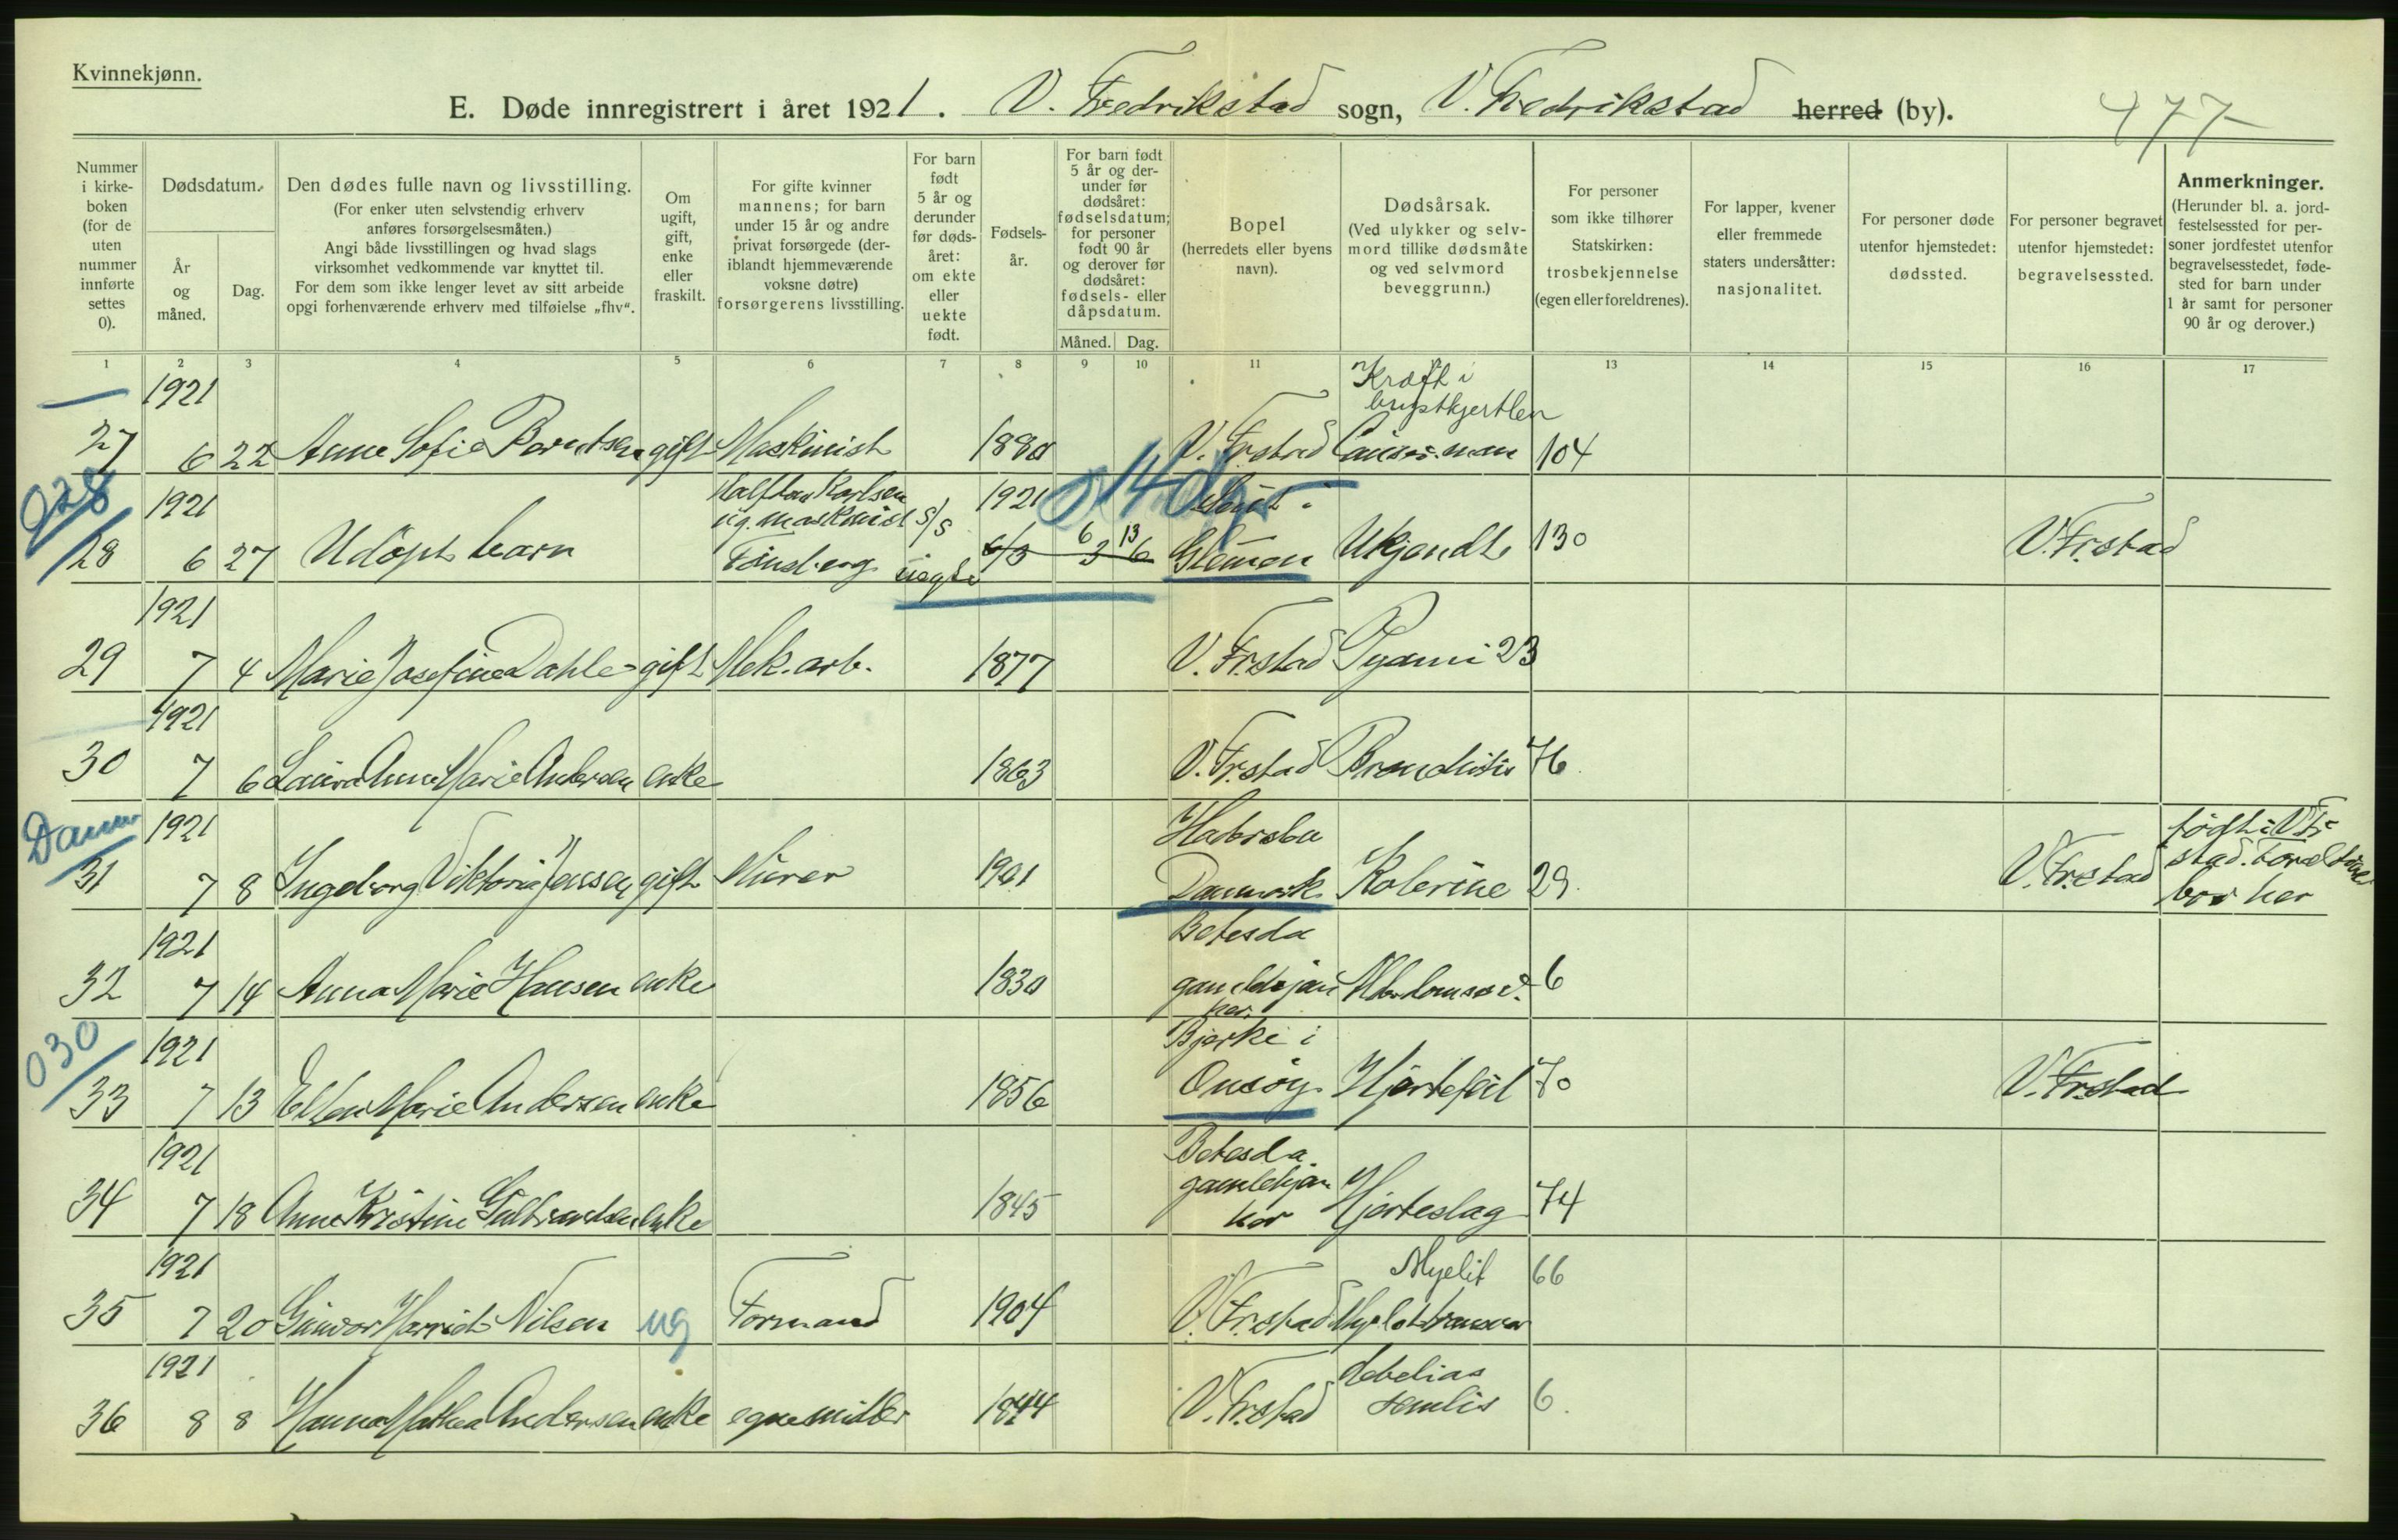 Kvinnekjønn.
E. Døde innregistrert i året 1921. V. Fredrikstad sogn, V. Fredrikstad herred (by).
477
Nummer i kirke- boken (for de uten nummer innførte settes 0).
Dødsdatum.
År og måned.
Dag.
Den dødes fulle navn og livsstilling.
(For enker uten selvstendig erhverv anføres forsørgelsesmåten.)
Angi både livsstillingen og hvad slags virksomhet vedkommende var knyttet til.
For dem som ikke lenger levet av sitt arbeide opgi forhenværende erhverv med tilføielse „fhv“.
Om ugift, gift, enke eller fraskilt.
For gifte kvinner mannens; for barn under 15 år og andre privat forsørgede (der- iblandt hjemmeværende voksne døtre) forsørgerens livsstilling.
For barn født 5 år og derunder før døds- året: om ekte eller uekte født.
Fødsels- år.
For barn født 5 år og der- under før dødsåret: fødselsdatum; for personer født 90 år og derover før dødsåret: fødsels- eller dåpsdatum.
Måned. Dag.
Bopel (herredets eller byens navn).
Dødsårsak.
(Ved ulykker og selv- mord tillike dødsmåte og ved selvmord beveggrunn.)
For personer som ikke tilhører Statskirken: trosbekjennelse (egen eller foreldrenes).
For lapper, kvener eller fremmede staters undersåtter: nasjonalitet.
For personer døde utenfor hjemstedet: dødssted.
For personer begravet utenfor hjemstedet: begravelsessted.
Anmerkninger.
(Herunder bl. a. jord- festelsessted for per- soner jordfestet utenfor begravelsesstedet, føde- sted for barn under 1 år samt for personer 90 år og derover.)
1 2 3 4 5 6 7 8 9 10 11 13 14 15 16 17
1921 Kræft i brystkjertlen
27 6 22 Anne Sofie Berntsen gift Maskinist 1880 V. Frstad 104
028
1921 Halfdan Karlsen ug. maskinist s/s 1921 14 dg
28 6 27 Udøpt barn Tønsberg uegte 6/3 3 6 6 13 Glemen Ukjendt 130 V. Frstad
1921
29 7 4 Marie Josefine Dahle gift Mek. arb. 1877 V. Frstad Pyämi 23
1921
30 7 6 Laura Anne Marie Andersen enke 1863 V. Frstad Bronchitis 76
Danm
1921
31 7 8 Ingeborg Viktoria Jensen gift Murer 1901 Danmark Kolerine 29. V. Frstad født i V. Fr- stad. Forældrene bor her
1921 Betesda
32 7 14 Anna Marie Hansen enke 1830 gamlehjem her. 6
030
1921 Bjerke i
33 7 13 Ellen Marie Andersen enke 1856 Onsøy Hjertefeil 70 V. Frstad
1921 Betesda
34 7 18 Anne Kristine enke 1845 gamlehjem her Hjerteslag 74
1921 Myelit 66
35 7 20 Gunvor Harriet Nilsen ug Formand 1904 V. Frstad
1921
36 8 8 Hanna Mathea Andersen enke egne midler 1844 V. Frstad senilis 6.